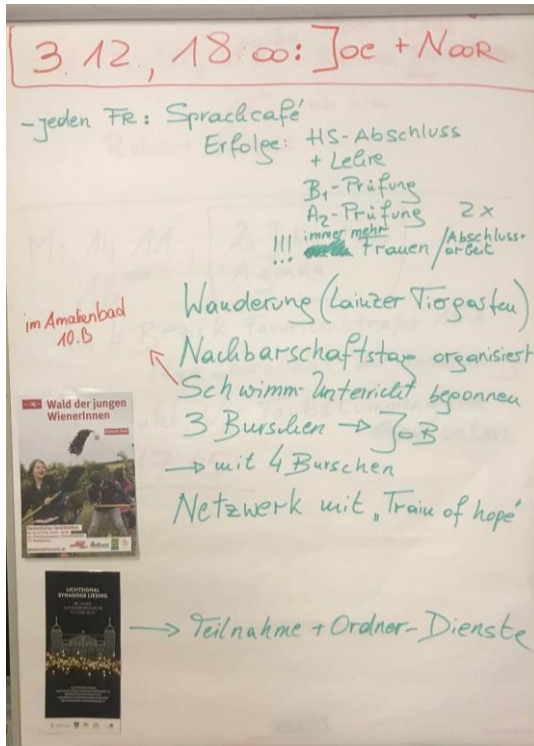 3.12., 18:00: Joe + NooR
- jeden FR: Sprachcafé
Erfolge: HS-Abschluss
+ Lehre
B1-Prüfung
A2-Prüfung 2x
!!! immer mehr Frauen / Abschluss-
arbeit
Wanderung (Lainzer Tiergarten)
im Amalienbad
10.B
Nachbarschaftstag organisiert
Schwimm-Unterricht begonnen
3 Burschen → JOB
→ mit 4 Burschen
Netzwerk mit „Train of hope"
Wald der jungen
WienerInnen
LICHTSIGNAL
SYNAGOGE LIESING
→ Teilnahme + Ordner-Dienste